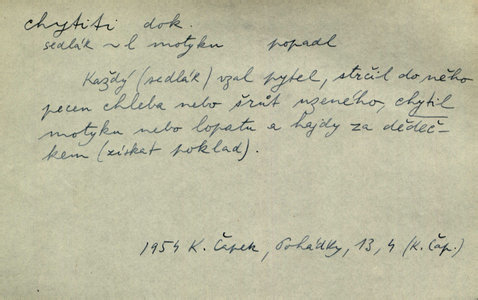 chytiti dok.
sedlák ~l motyku popadl
Každý (sedlák) vzal pytel, strčil do něho
pecen chleba nebo šrůt uzeného, chytil
motyku nebo lopatu a hajdy za dědeč-
kem (získat poklad).
1954 K. Čapek, Pohádky, 13, 4 (K. Čap.)